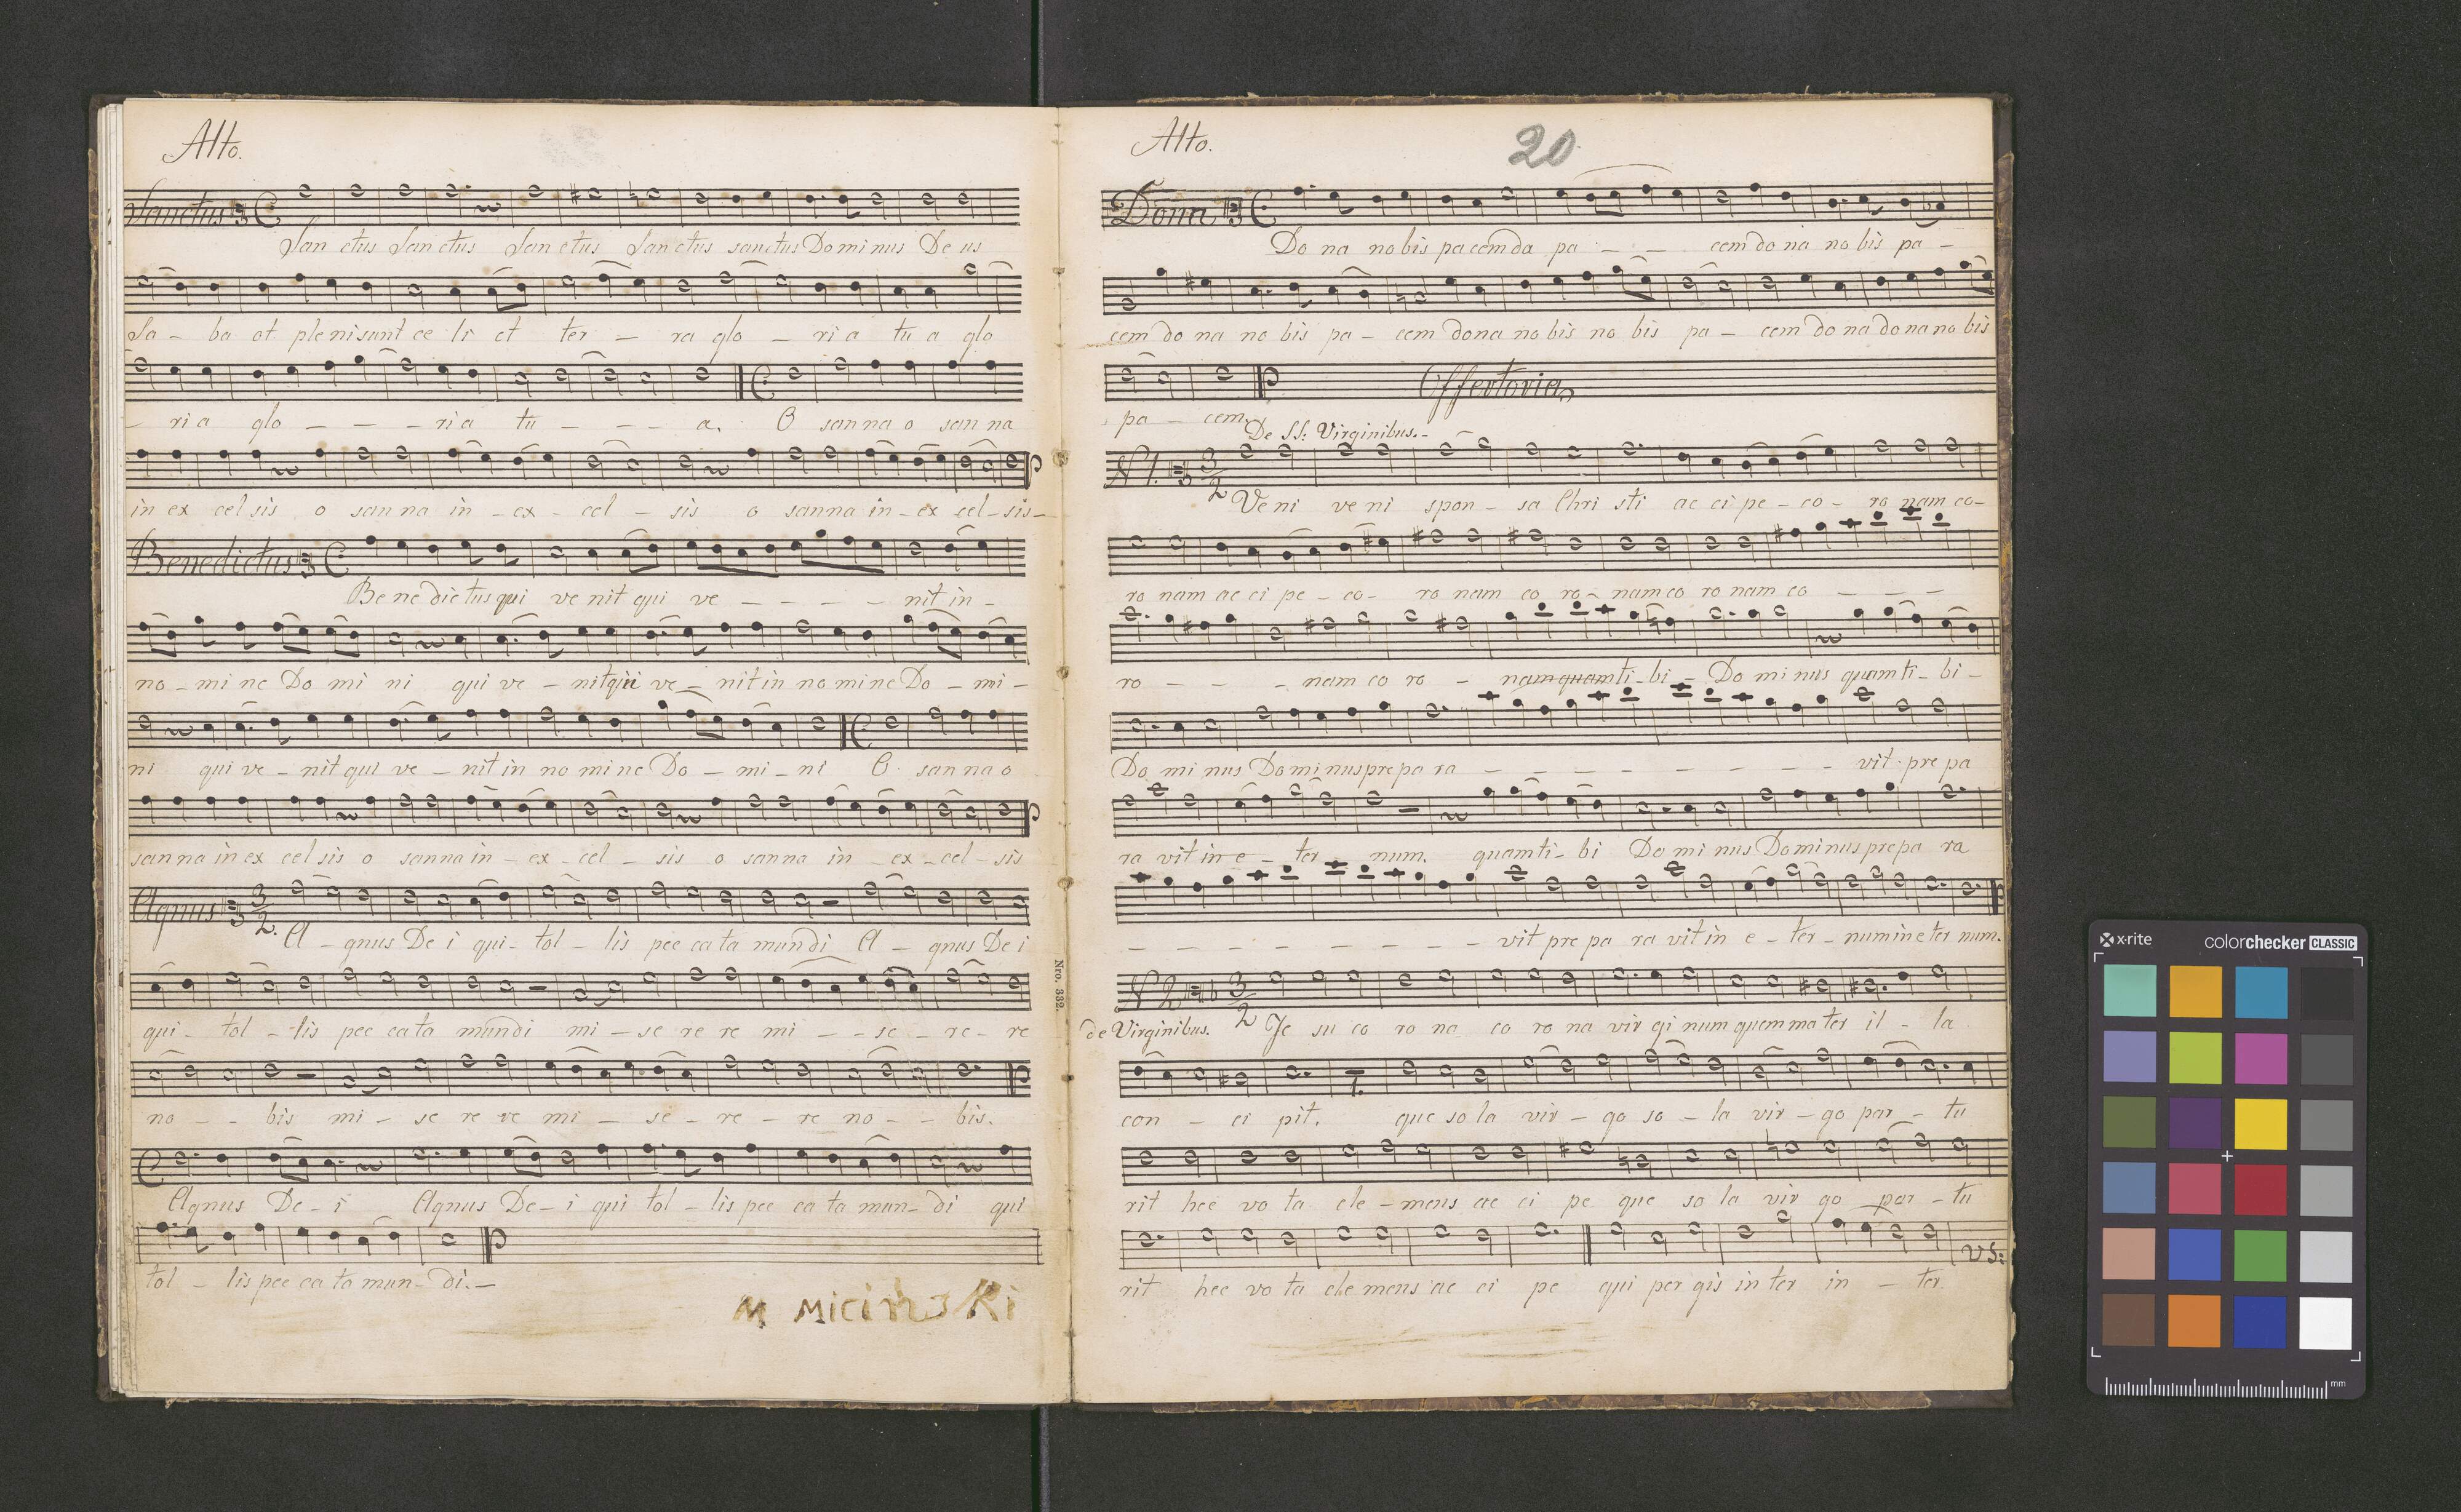 Alto.
Sanctus
San ctus San ctus San ctus San ctus sanctus Do mi nus De us
Sa - ba ot ple ni sunt ce li et ter - ra glo - ri a tu a glo
- ri a glo - - - ri a tu - - - a. O san na o san na
in ex cel sis o san na in - ex - cel - sis o san na in - ex cel - sis -
Benedictus
Be ne dictus qui ve nit qui ve - - - - nit in -
no - mi ne Do mi ni qui ve - nit qui ve - nit in no mi ne Do - mi -
ni qui ve - nit qui ve - nit in no mi ne Do - mi - ni O san na o
san na in ex cel sis o san na in - ex - cel - sis o san na in - ex - cel - sis
Agnus 3/2.
A - gnus De i qui - tol - lis pec ca ta mundi A - gnus De i
qui - tol - lis pec ca ta mundi mi - se re re mi - - se - re - re
no - - bis mi - se re re mi - se - re - re no - - bis.
Agnus De - i Agnus De - i qui tol - lis pec ca ta mun - di qui
tol - lis pec ca ta mun - di. -
M Miciński
Nro. 332.
Alto.
20
Dona
Do na no bis pa cem da pa - - - cem do na no bis pa -
cem do na no bis pa - cem dona no bis no bis pa - cem do na do na no bis
Offertoria
pa - cem.
De SS: Virginibus. -
N 1. 3/2
Ve ni ve ni spon - sa Chri sti ac ci pe - co - ro nam co -
ro nam ac ci pe - co - ro nam co ro - nam co ro nam co - - -
ro - - - nam co ro - nam quam ti - bi - Do mi nus quam ti - bi -
Do mi nus Do mi nus pre pa ra - - - - - - - - vit pre pa
ra vit in e - ter - num. quam ti - bi Do mi nus Do mi nus pre pa ra
- - - - - - - - - vit pre pa ra vit in e - ter - num in e ter num.
N 2 3/2
de Virginibus. Je su co ro na co ro na vir gi num quem ma ter il - la
con - ci pit. que so la vir - go so - la vir - go par - tu
rit hec vo ta cle - mens ac ci pe que so la vir go par - tu
rit hec vo ta cle mens ac ci pe qui per gis in ter in - ter
VS:
x·rite
colorchecker CLASSIC
mm